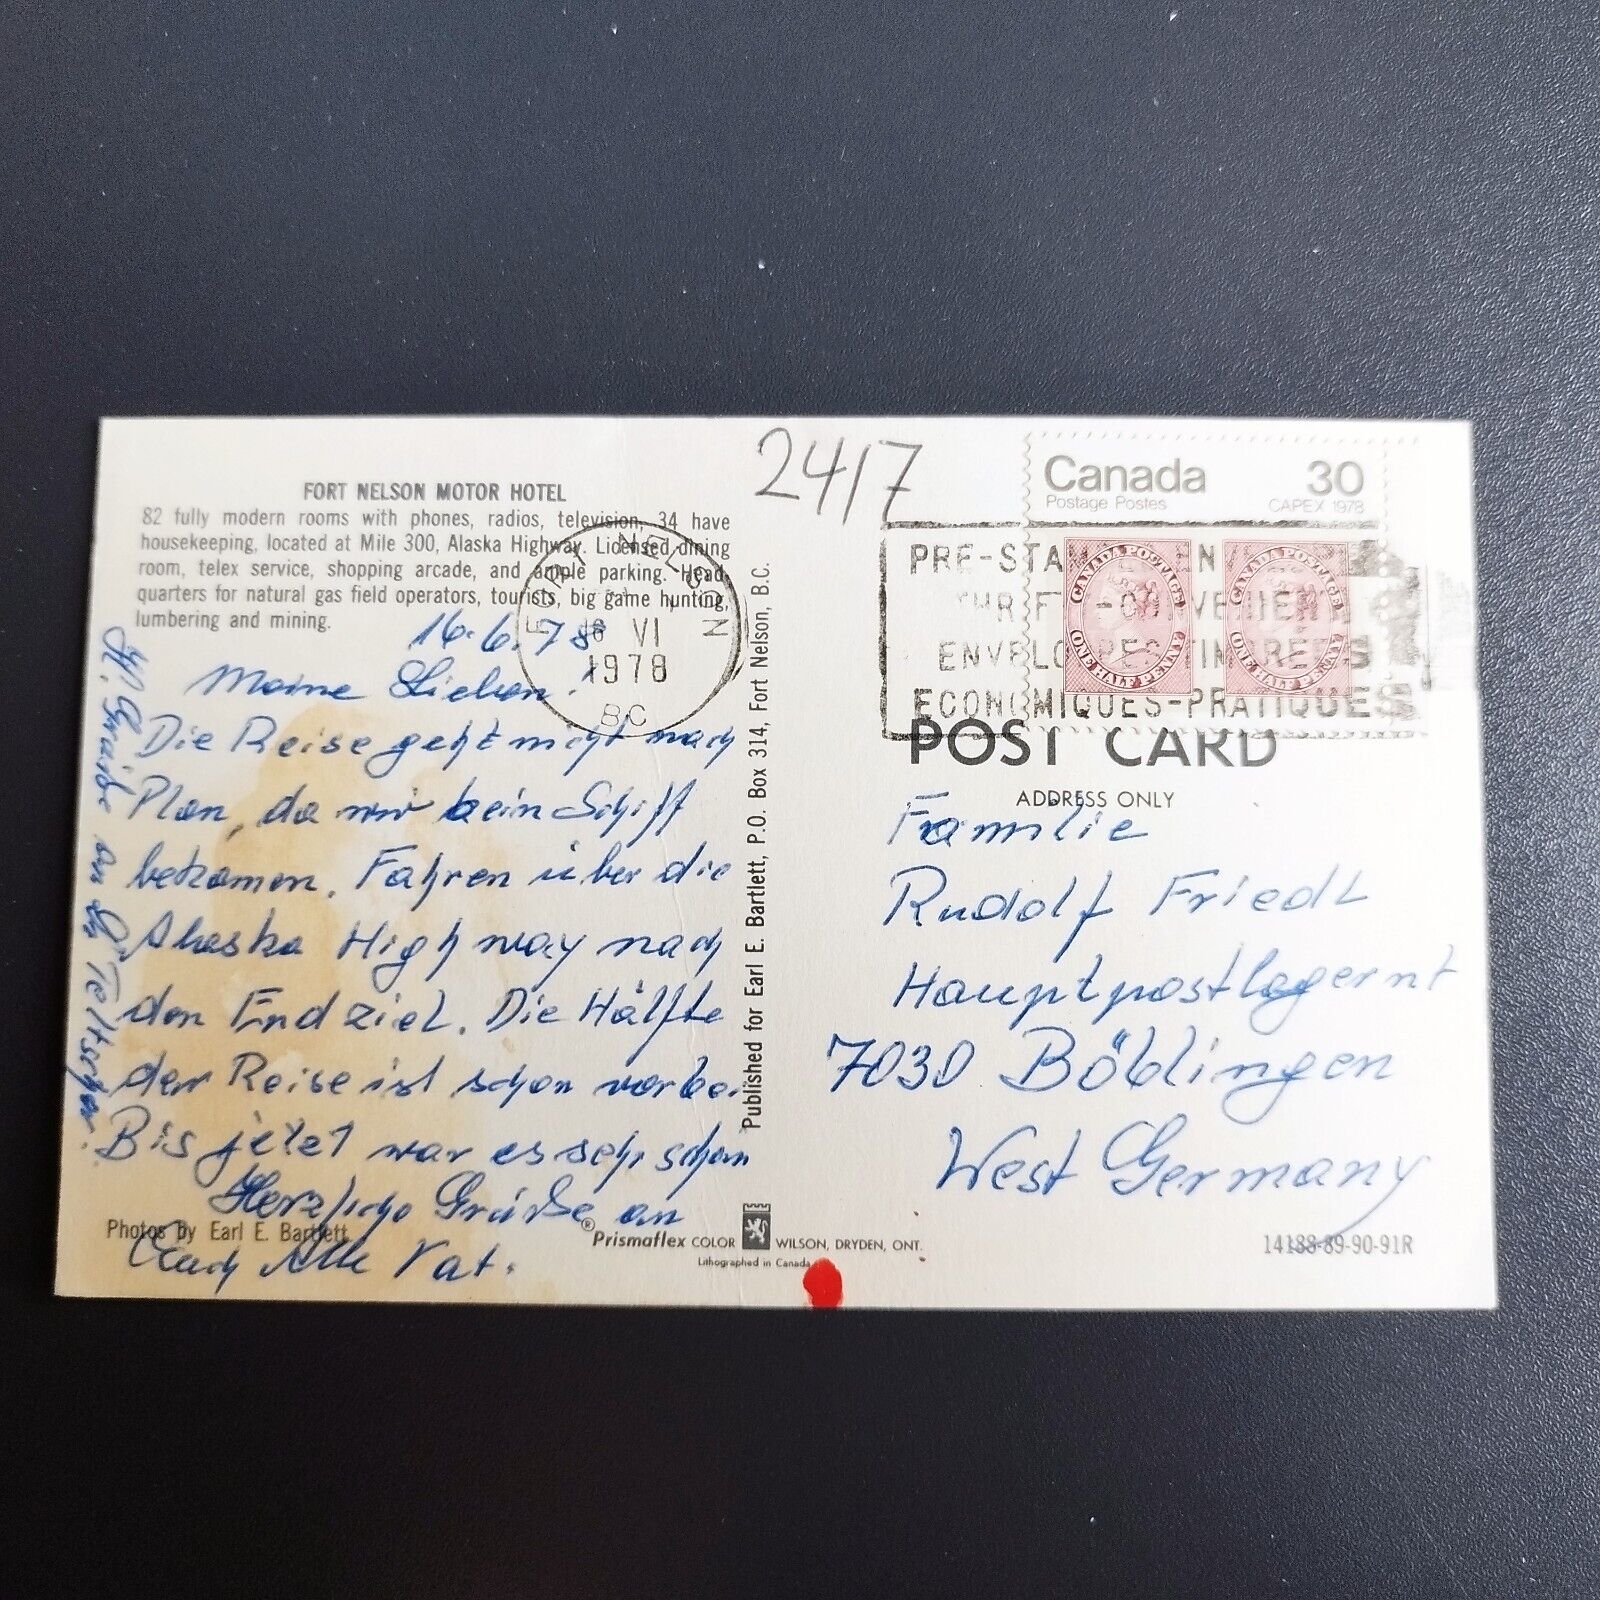 FORT NELSON MOTOR HOTEL
82 fully modern rooms with phones, radios, television, 34 have
housekeeping, located at Mile 300, Alaska Highway. Licensed dining
room, telex service, shopping arcade, and ample parking. Head-
quarters for natural gas field operators, tourists, big game hunting,
lumbering and mining.
16.6.78
Meine Lieben!
Die Reise geht nicht nach
Plan, da wir kein Schiff
bekamen. Fahren über die
Alaska Highway nach
den Endziel. Die Hälfte
der Reise ist schon vorbei
Bis jetzt war es sehr schön
Herzliche Grüße an
Euch Alle Vat.
Grüße an
Photos by Earl E. Bartlett
FORT NELSON
16 VI
1978
B.C.
Published for Earl E. Bartlett, P.O. Box 314, Fort Nelson, B.C.
Prismaflex COLOR WILSON, DRYDEN, ONT.
Lithographed in Canada
2417
Canada 30
Postage Postes CAPEX 1978
CANADA POSTAGE
ONE HALF PENNY
CANADA POSTAGE
ONE HALF PENNY
PRE-STAMPED ENVELOPES
THRIFTY-CONVENIENT
ENVELOPES TIMBRÉES
ECONOMIQUES-PRATIQUES
POST CARD
ADDRESS ONLY
Familie
Rudolf Friedl
Hauptpostlagernt
7030 Böblingen
West Germany
14188-89-90-91R